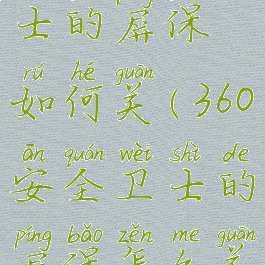 士的屏保
rú hé guān
如何关(360
ān quán wèi shì de
安全卫士的
píng bǎo zěn me guān
屏保怎么关